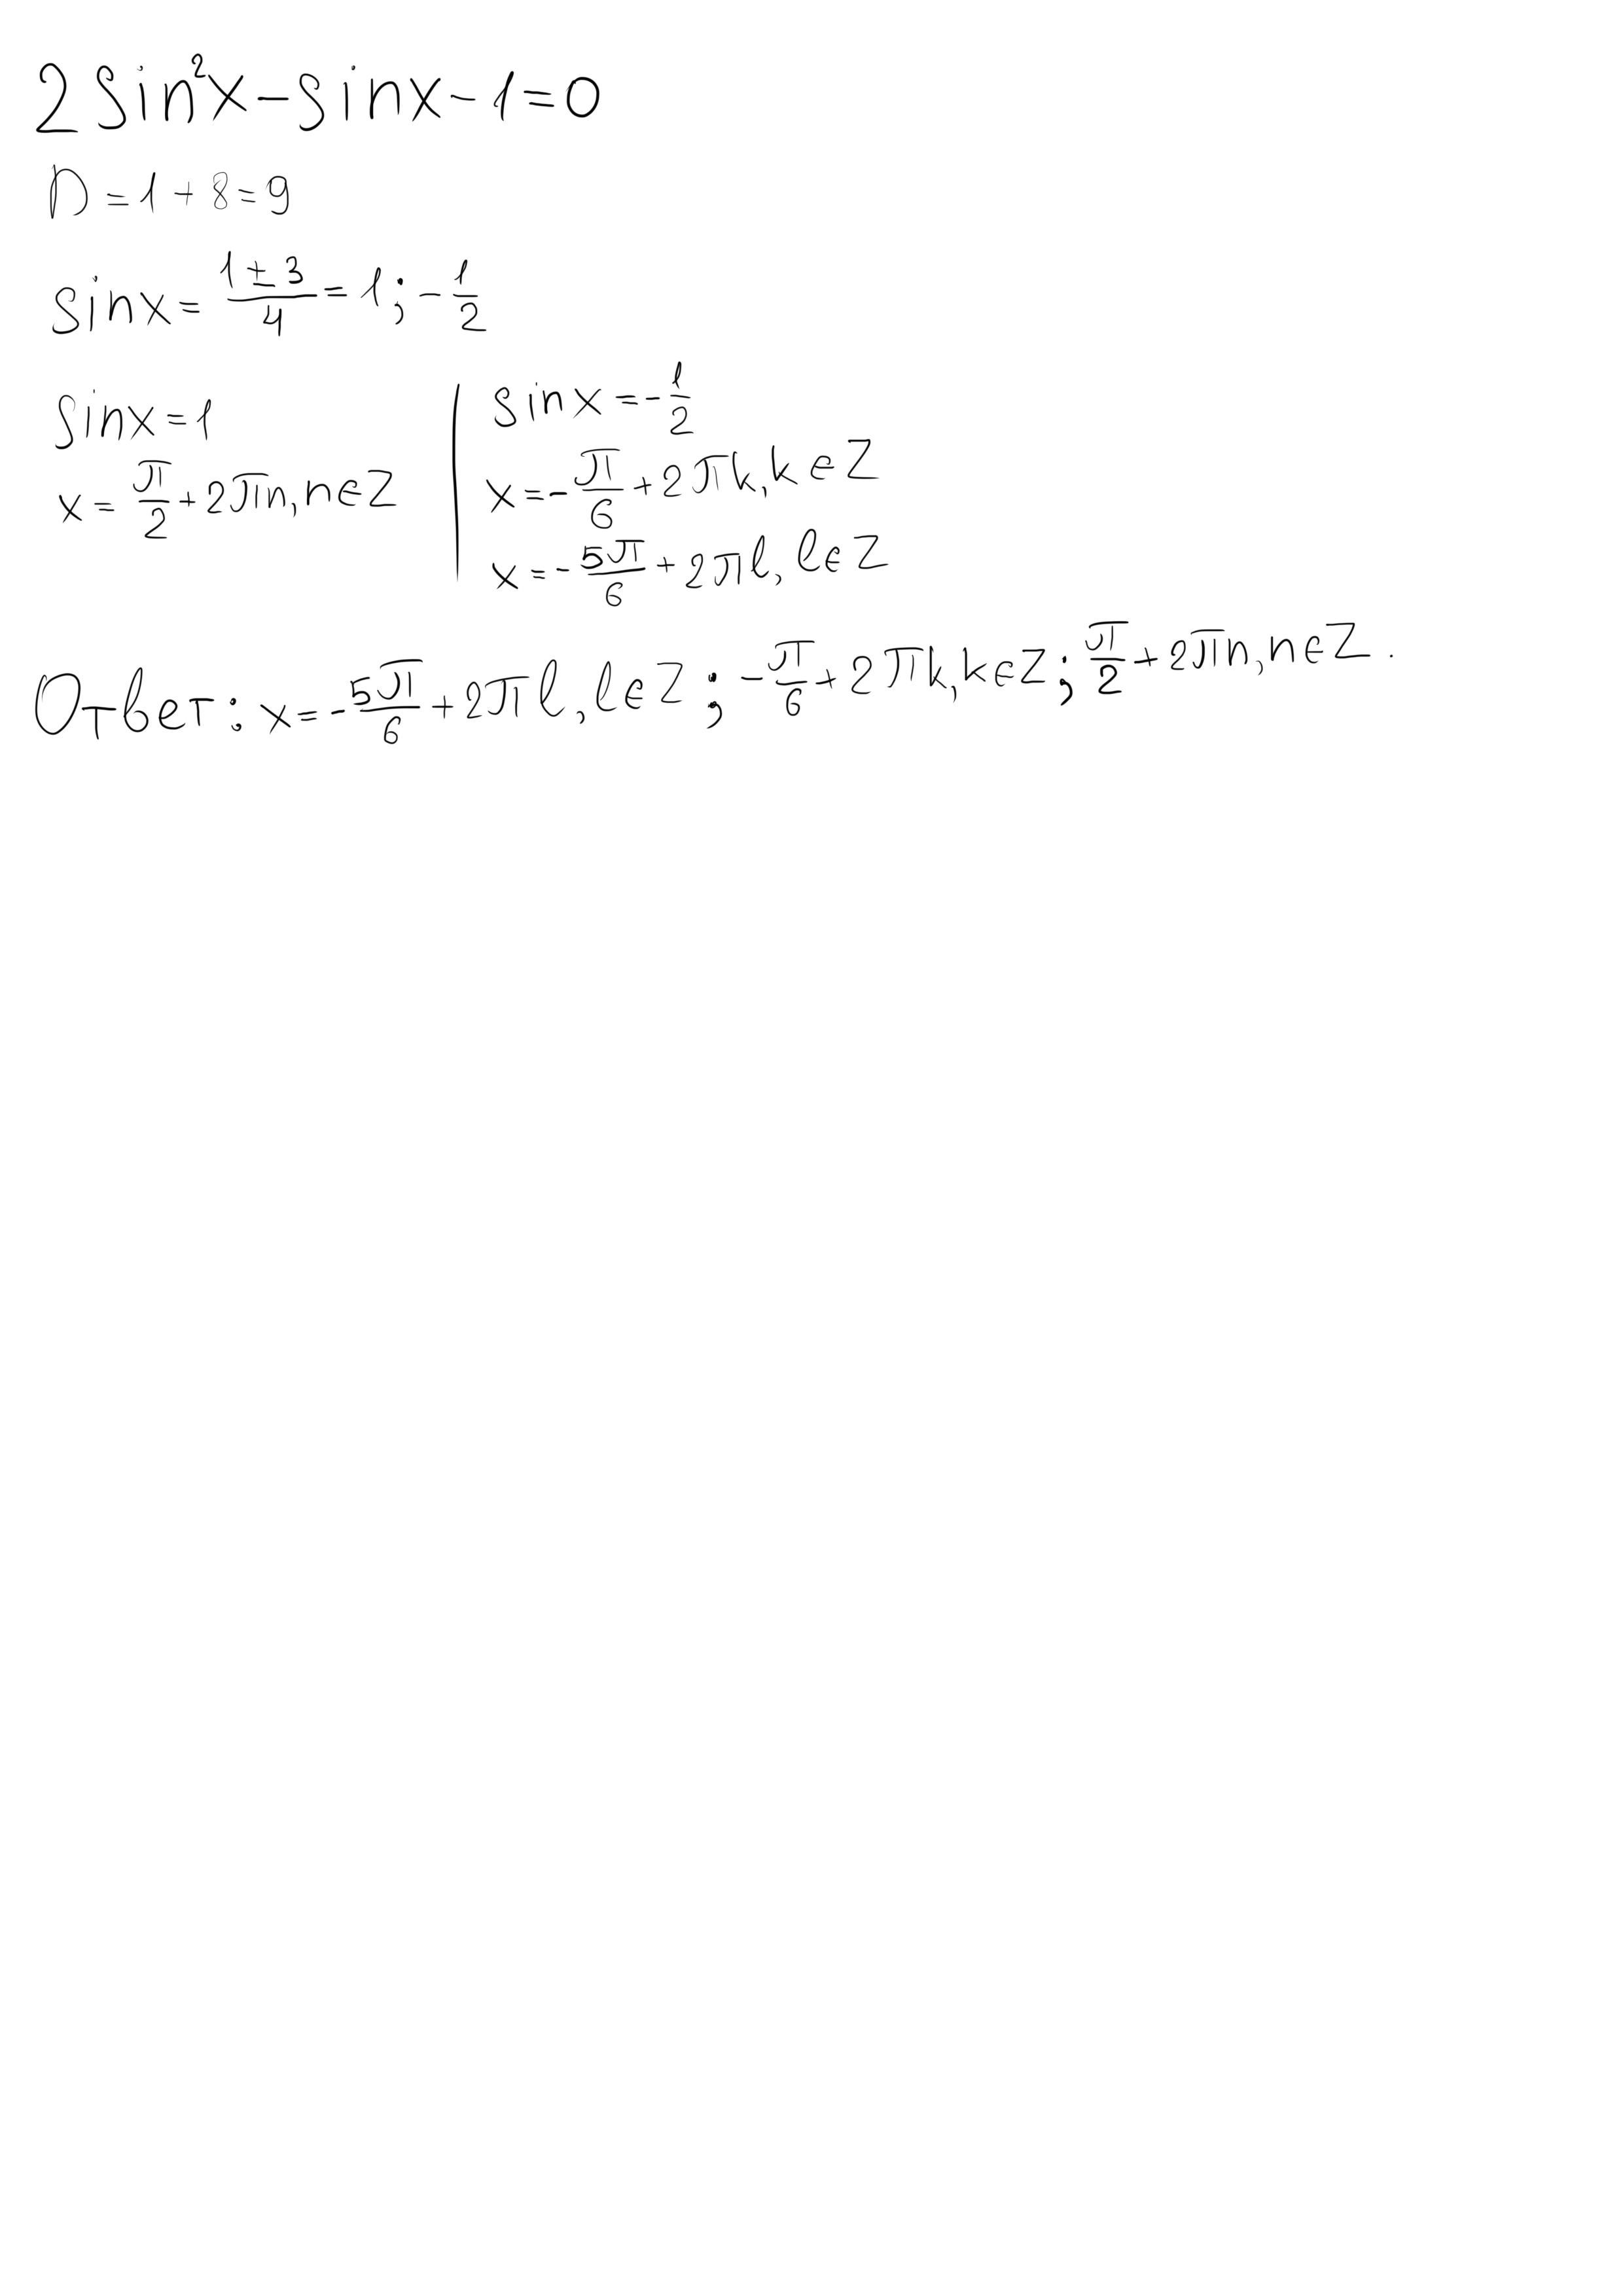 2 sin²x - sinx - 1 = 0
D = 1 + 8 = 9
sinx = (1 ± 3)/4 = 1; -1/2
sinx = 1
x = π/2 + 2πn, n∈Z
sinx = -1/2
x = -π/6 + 2πk, k∈Z
x = -5π/6 + 2πl, l∈Z
Ответ: x = -5π/6 + 2πl, l∈Z; -π/6 + 2πk, k∈Z; π/2 + 2πn, n∈Z.